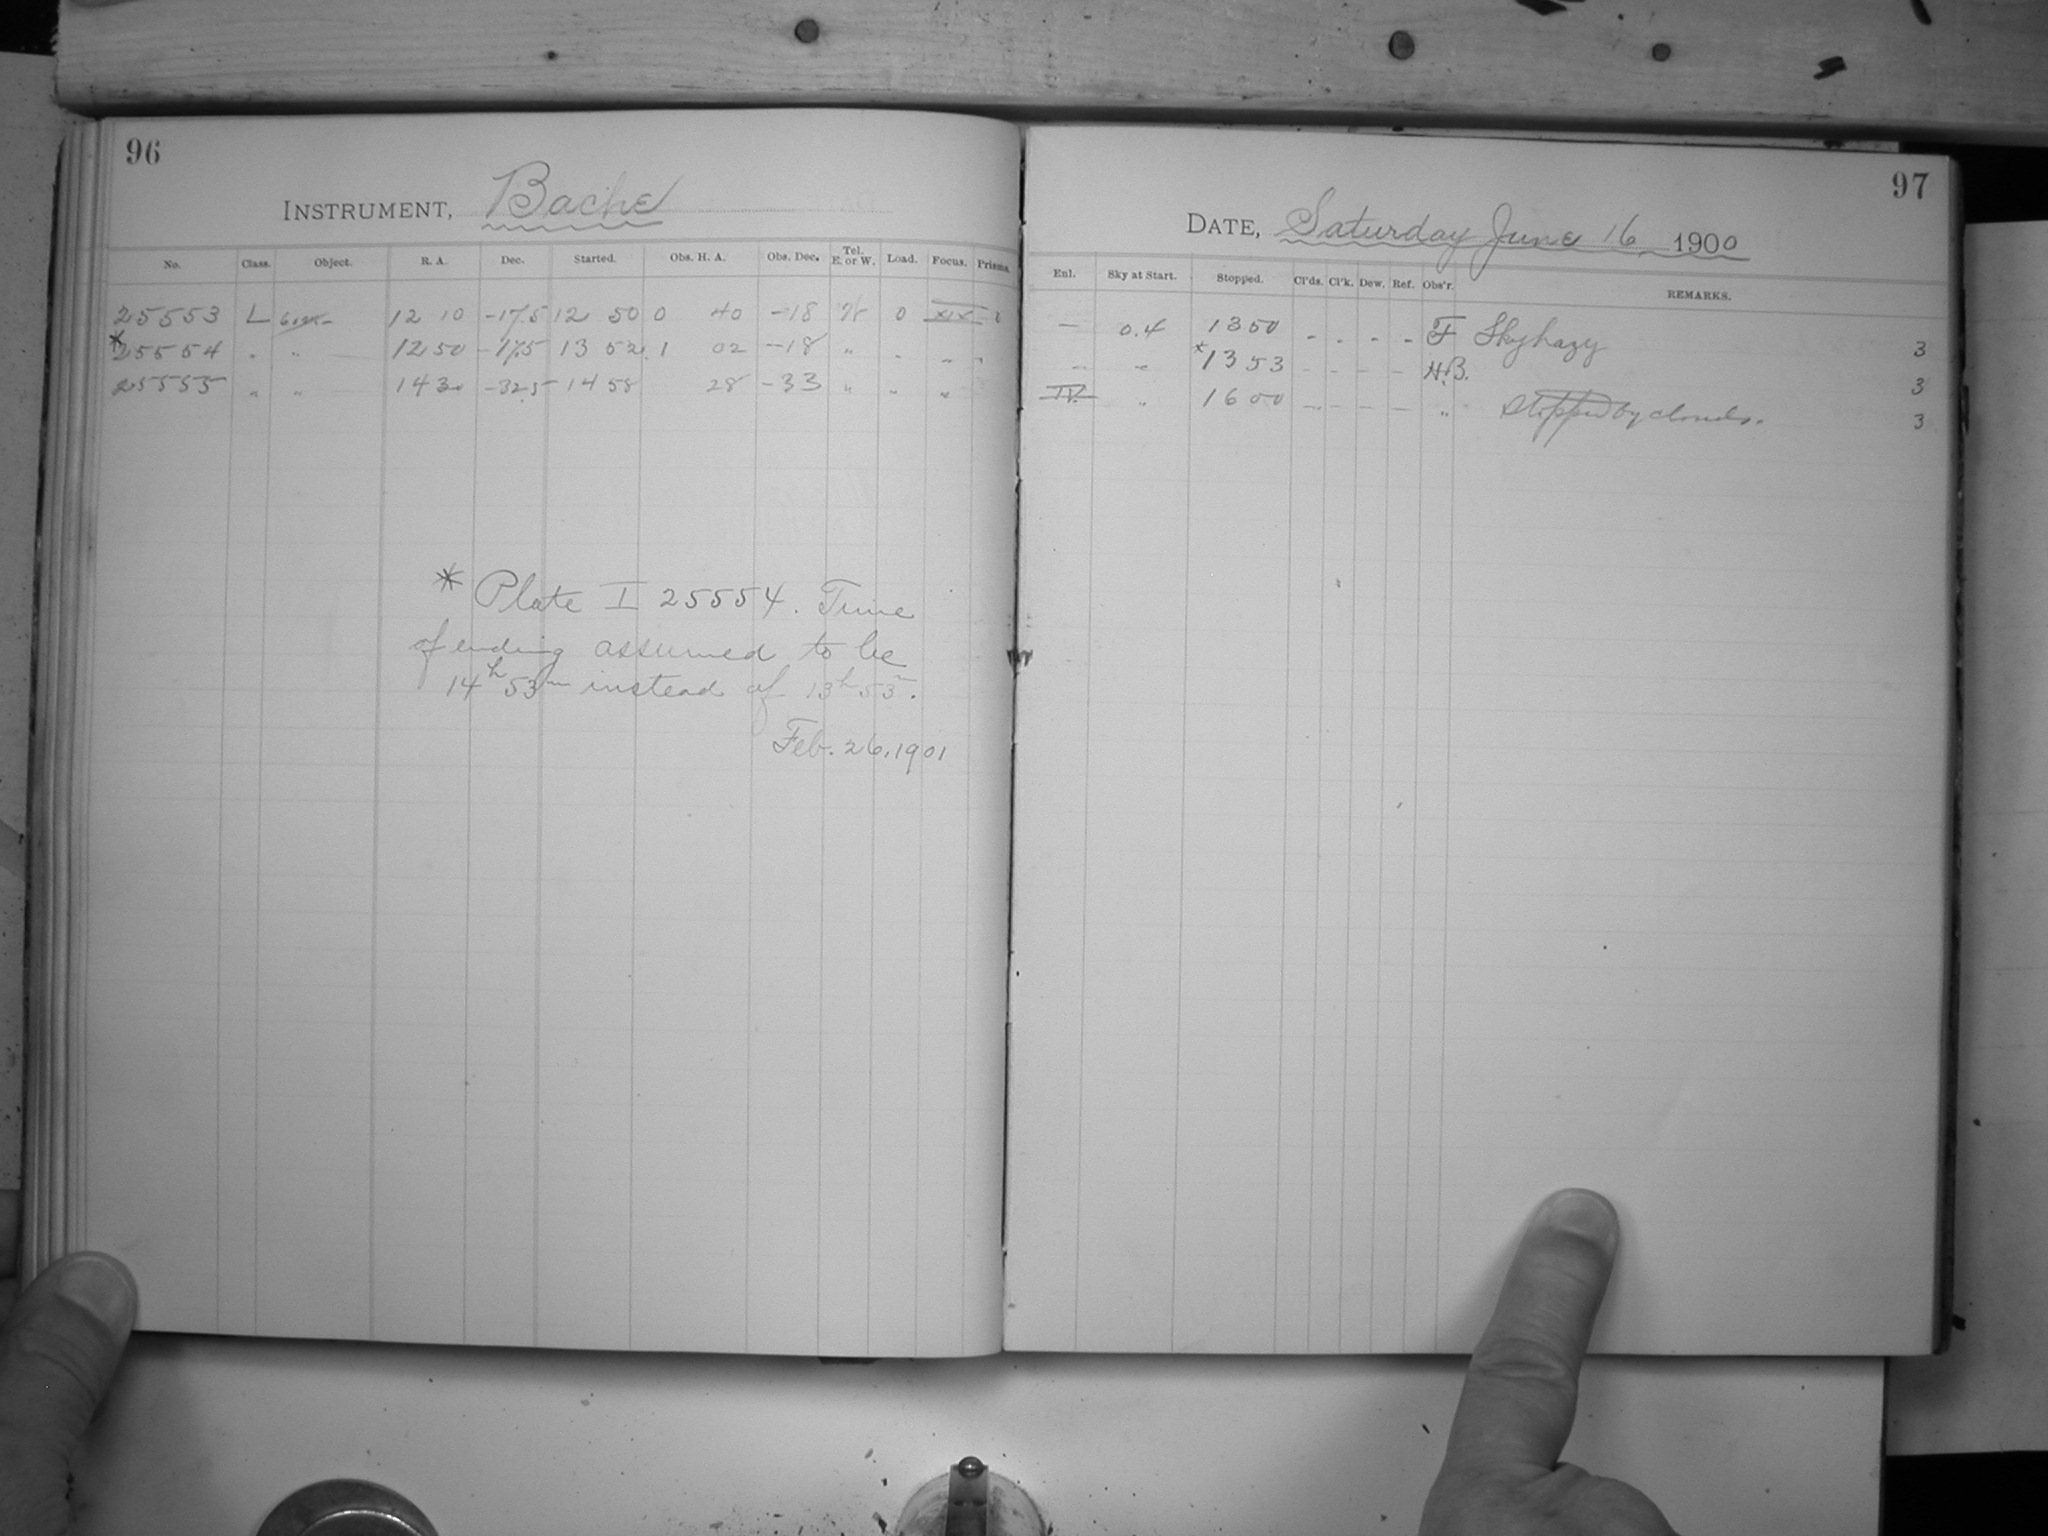 96
INSTRUMENT, Bache
No. Class. Object. R. A. Dec. Started. Obs. H. A. Obs. Dec. Tel. E. or W. Load. Focus. Prisms.
25553 L 12 10 -17.5 12 50 0 40 -18 W 0 XIX 0
*25554 " " 12 50 -17.5 13 52 1 02 -18 " " " "
25555 " " 14 30 -32.5 14 58 28 -33 " " "
* Plate I 25554. Time
of ending assumed to be
14h 53m instead of 13h 53m.
Feb. 26, 1901
97
DATE, Saturday June 16, 1900
Enl. Sky at Start. Stopped. Cl'ds. Cl'k. Dew. Ref. Obs'r. REMARKS.
— 0.4 13 50 - - - - F Sky hazy 3
" " *13 53 - - - - H.B. 3
IV. " 16 00 - - - - " Stopped by clouds. 3